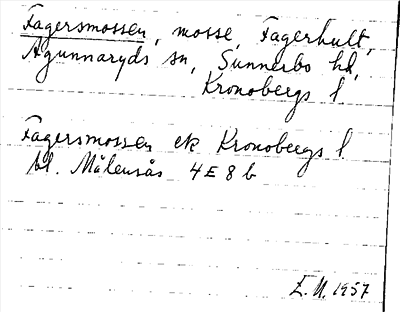 Fagersmossen, mosse, Fagerhult,
Agunnaryds sn, Sunnerbo hd,
Kronobergs l
Fagersmossen ek Kronobergs l
bl. Målensås 4E 8b
E.U. 1957